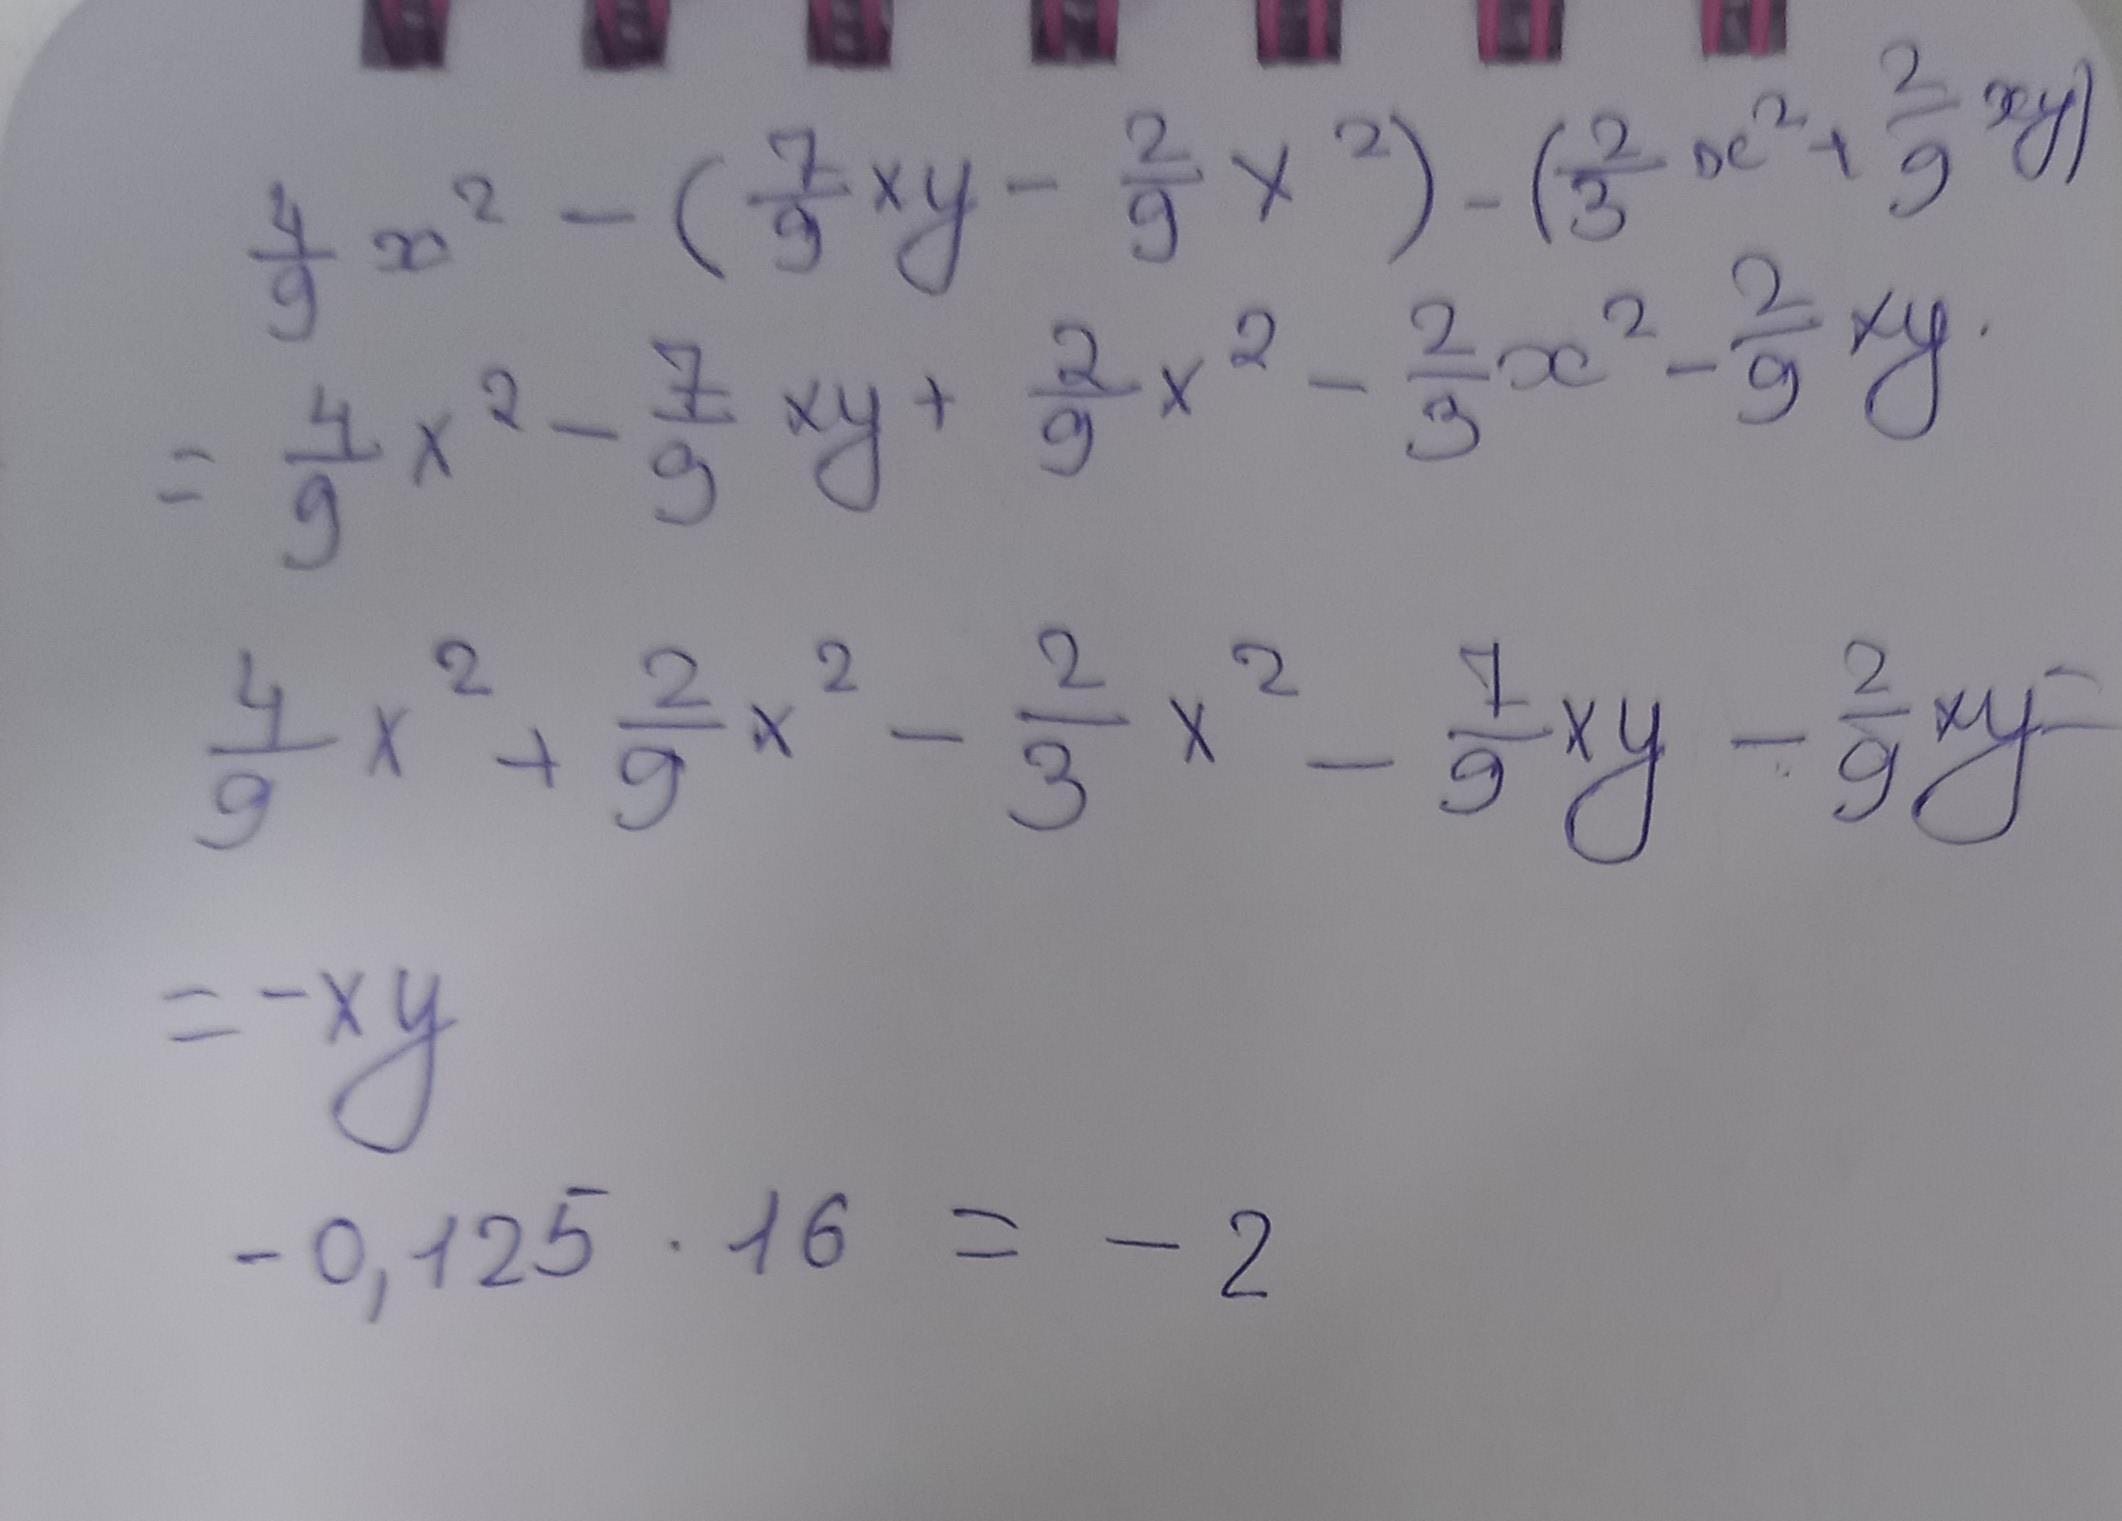 4/9 x² - (7/9 xy - 2/9 x²) - (2/3 x² + 2/9 xy)
= 4/9 x² - 7/9 xy + 2/9 x² - 2/3 x² - 2/9 xy.
4/9 x² + 2/9 x² - 2/3 x² - 7/9 xy - 2/9 xy =
= -xy
-0,125 · 16 = -2